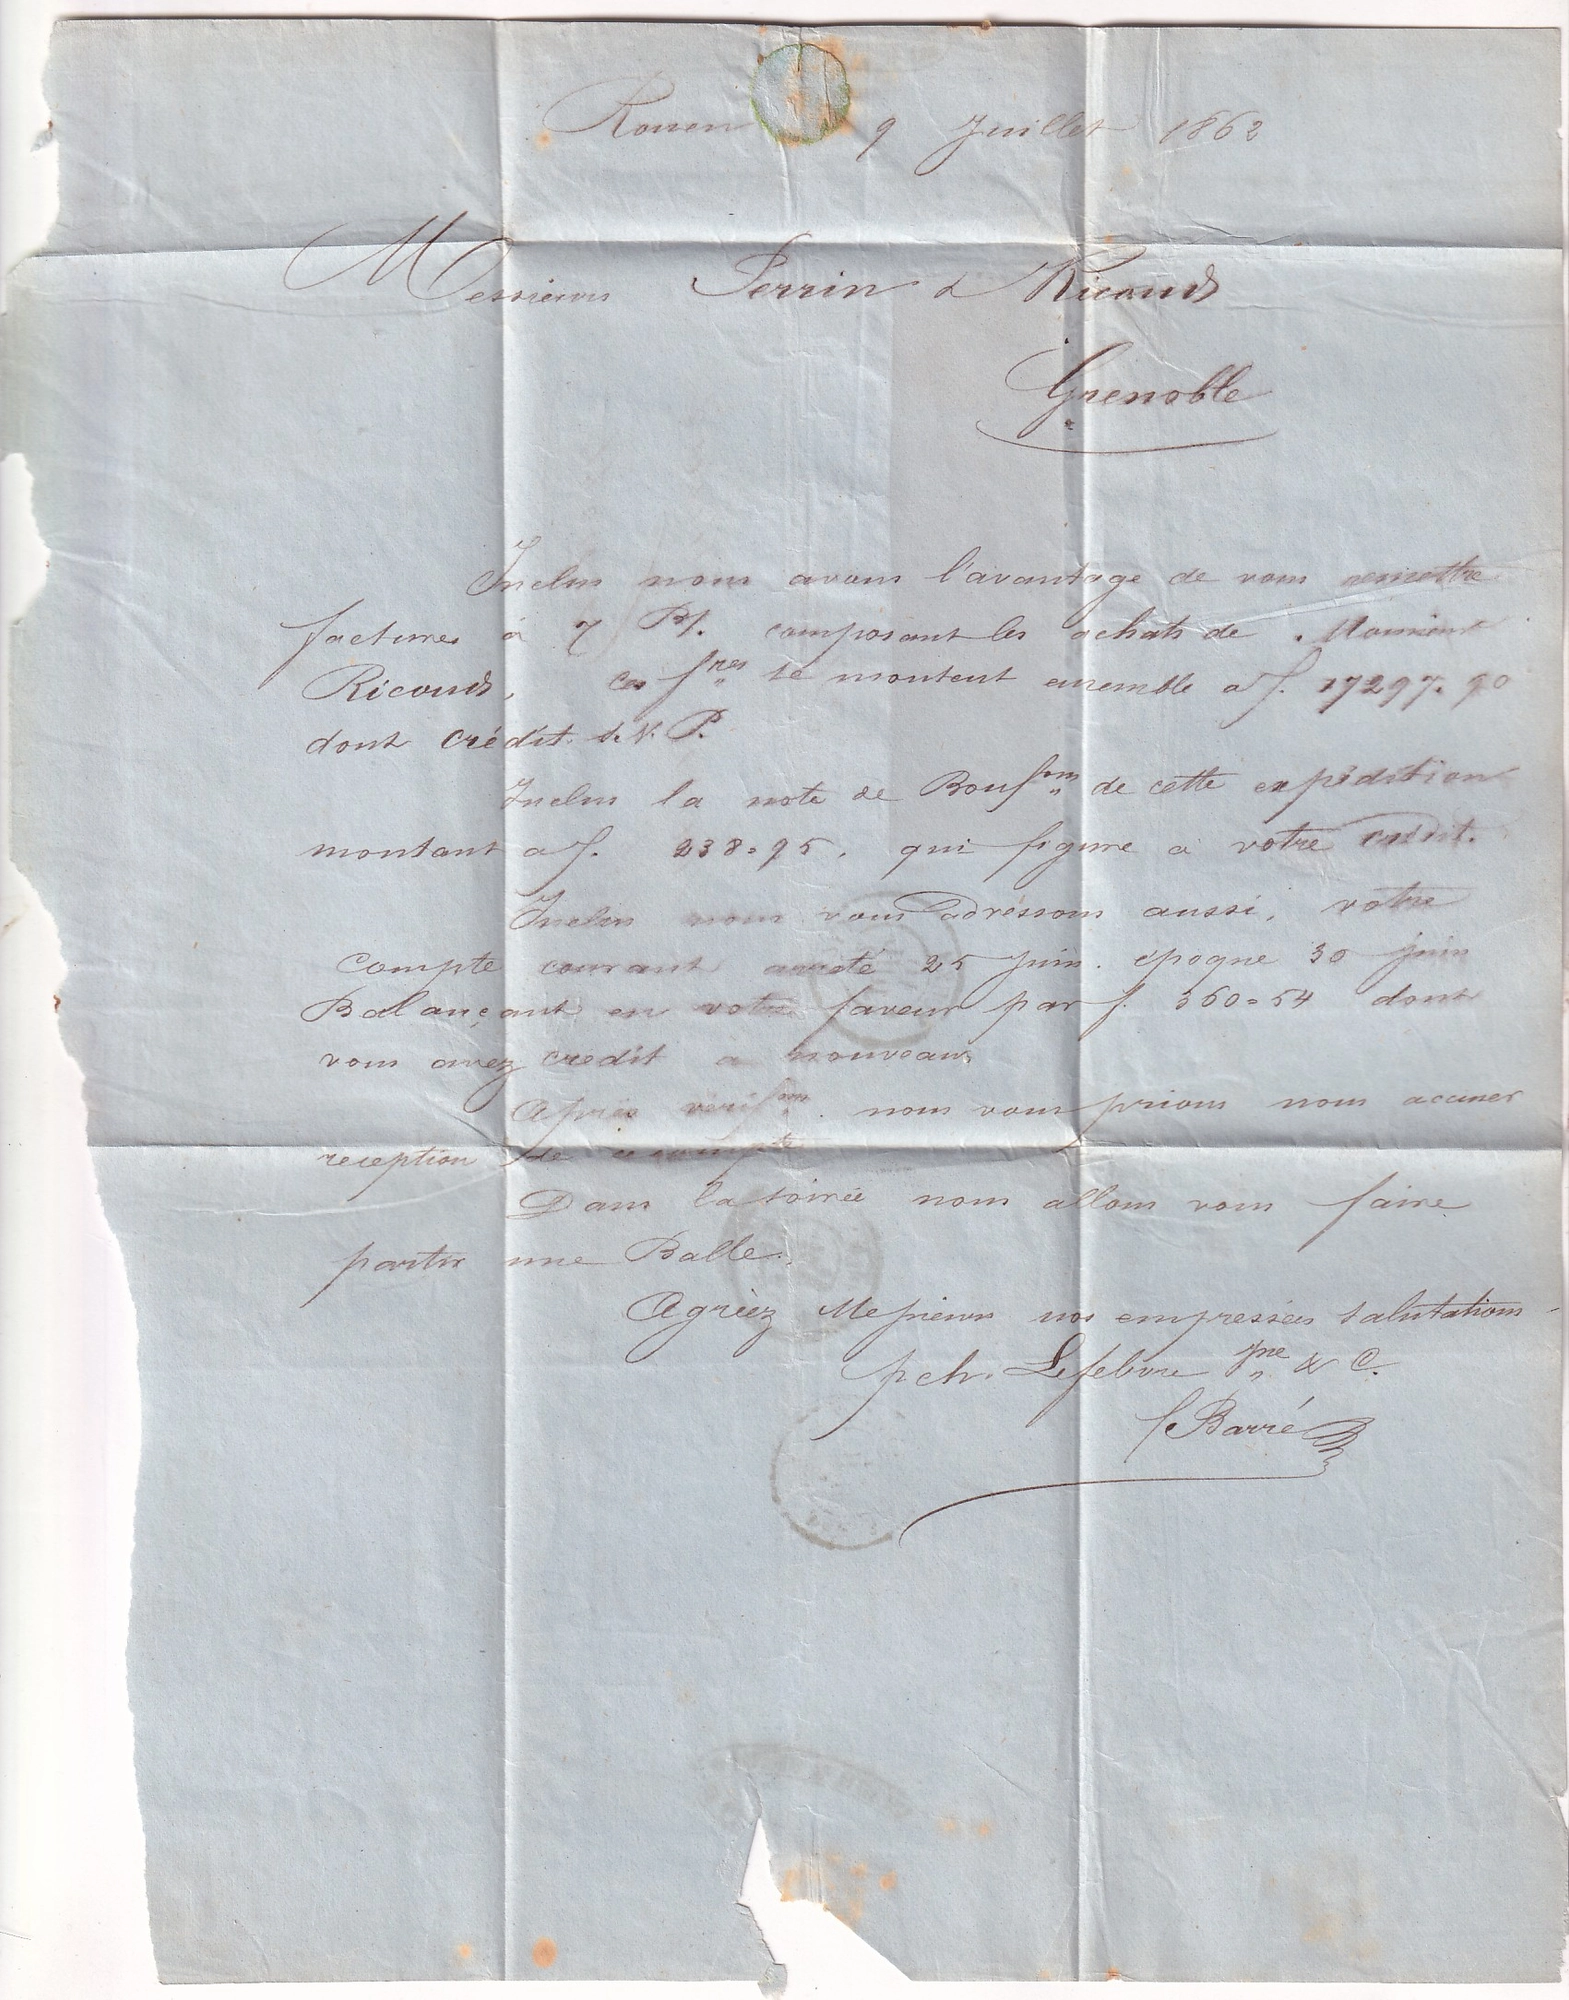 Rouen 9 Juillet 1862
Messieurs Perrin & Ricoud
Grenoble
Inclus nous avons l'avantage de vous remettre
factures à 7 Bs. composant les achats de Monsieur
Ricoud, ces fres se montent ensemble a f. 17297=90
dont crédit s.N.P.
Inclus la note de Boufons de cette expédition
montant a f. 238=95. qui figure à votre crédit.
Inclus nous vous adréssons aussi, votre
Compte courant arrêté 25 Juin. époque 30 Juin
Balançant en votre faveur par f. 360=54 dont
vous avez crédit a nouveau
Après vérifon nous vous prions nous accuser
reception de ce compte
Dans la soirée nous allons vous faire
partir une Balle.
Agréez Messieurs nos empressées salutations
p ch. Lefebvre jne & C.
Barré